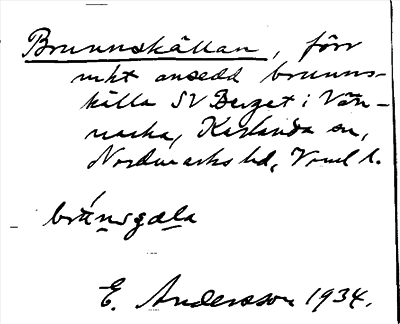 Brunnskällan, förr
mkt ansedd brunns-
källa SV Berget i Vär-
nacka, Karlanda sn,
Nordmarks hd, Vrml l.
brúnsgæla
E. Andersson 1934.